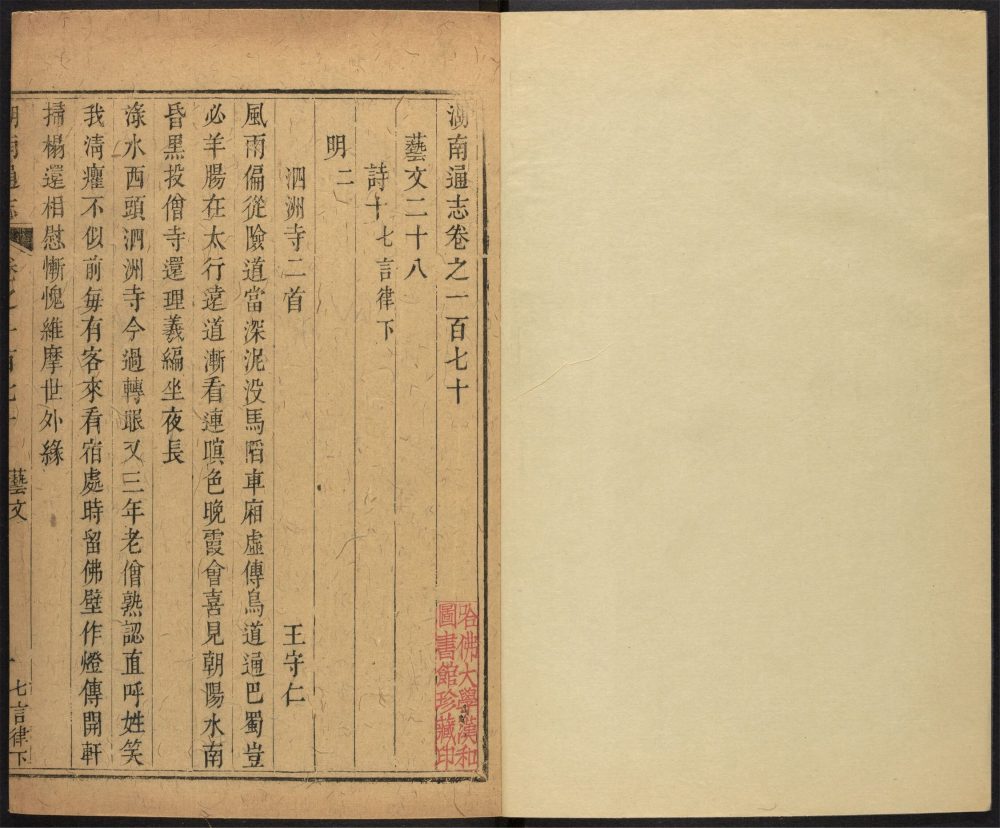 湖南通志卷之一百七十
藝文二十八
詩十七言律下
明二
泗洲寺二首 王守仁
風雨偏從險道當深泥没馬䧟車廂虛傳鳥道通巴蜀豈
必羊腸在太行遠道漸看連暝色晚霞會喜見朝陽水南
昏黑投僧寺還理義編坐夜長
淥水西頭泗洲寺今過轉眼又三年老僧熟認直呼姓笑
我清癯不似前每有客來看宿處時留佛壁作燈傳開軒
掃榻還相慰慚愧維摩世外緣
湖南通志 卷之一百七十 藝文 七言律下
哈佛大學漢和
圖書館珍藏印